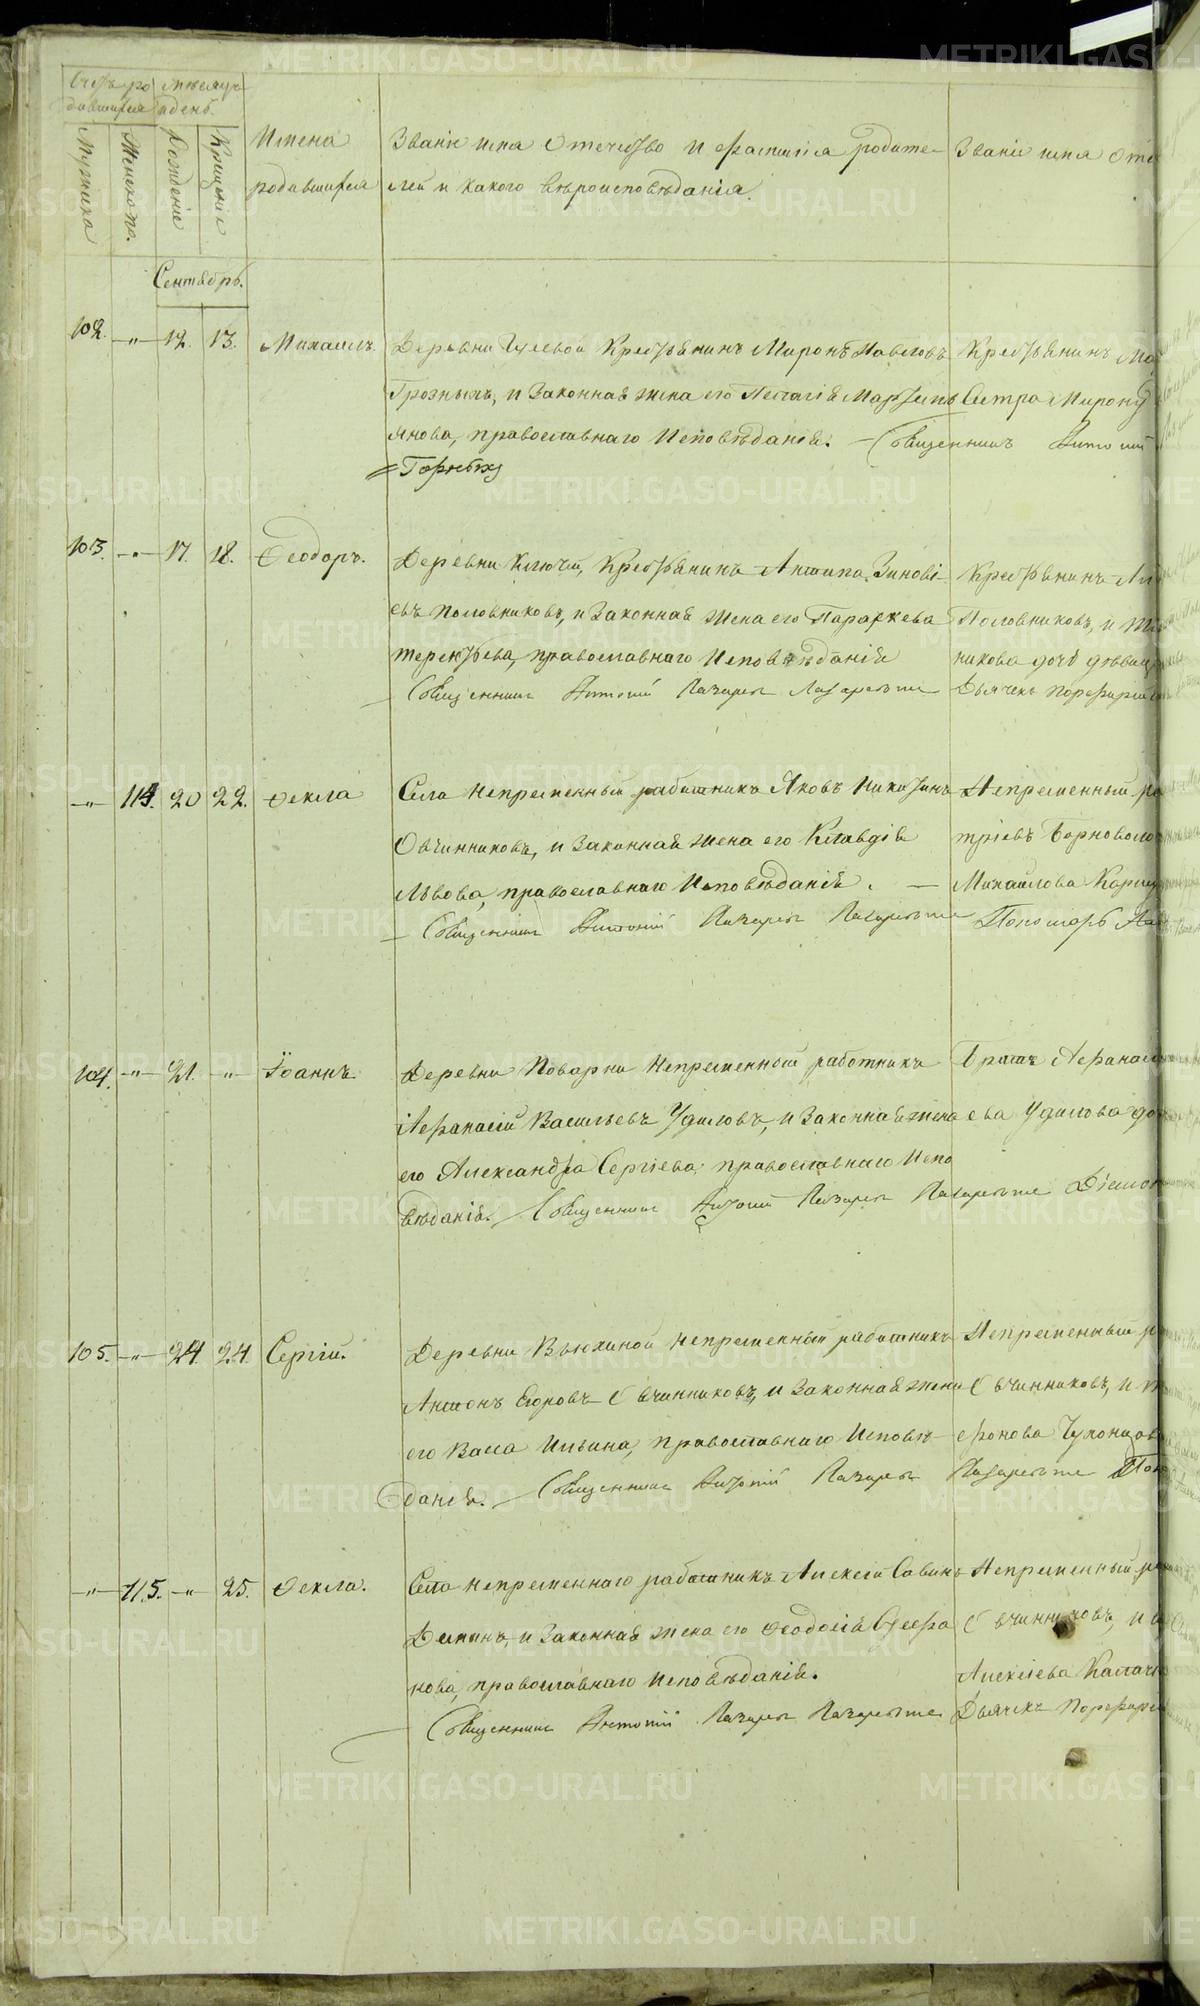 Счетъ ро мѣсяцъ
дившихся и день.
Мужеска
Женска по.
Рожденіе
Крещеніе
Имена
родившихся
Званіе имя отечество и фамилія родите-
лей и какого вѣроисповѣданія.
Званіе имя оте
Сентябрь.
102. -"- 12. 13. Михаилъ.
Деревни Крестьянинъ Миронъ Павловъ
Грозныхъ, и законная жена его Пелагія Мартемь
янова, православнаго исповѣданія. — Священникъ Антоній
Горныхъ
Крестьянинъ
Сестра Мирону
103. -"- 17. 18. Ѳеодоръ.
Деревни Ключей, Крестьянинъ Антипа Зиновіе-
евъ Половниковъ, и законная жена его Параскева
терентьева, православнаго исповѣданія
Священникъ Антоній Лазаревъ Лазаревъ
Крестьянинъ
Половниковъ, и
никова дочь дѣвица
Дьячекъ Порфирій
-"- 114. 20 22. Ѳекла
Села непременный работникъ Яковъ Никитинъ
Овчинниковъ, и законная жена его Клавдія
Львова, православнаго исповѣданія. —
Священникъ Антоній Лазаревъ
Непременный ра
тріевъ Черноволо
Михайлова
Пономарь
104. -"- 21. -"- Іоаннъ
Деревни Поварни непременный работникъ
Афанасій Васильевъ Удиловъ, и законная жена
его Александра Сергіева, православнаго испо
вѣданія. — Священникъ Антоній Лазаревъ
Братъ Афанасі
ева Удилова до
Діакон
105. -"- 24. 24. Сергій.
Деревни Вьюхиной непременный работникъ
Антонъ Егоровъ Овчинниковъ, и законная жена
его Васса Ильина, православнаго исповѣ-
данія. — Священникъ Антоній Лазаревъ
Непременный р
Овчинниковъ, и
фонова
Пон
-"- 115. -"- 25. Ѳекла.
Села непременнаго работникъ Алексей Савинъ
Деминъ, и законная жена его Ѳеодосія Стефа
нова, православнаго исповѣданія.
Священникъ Антоній Лазаревъ
Непременный ра
Овчинниковъ, и
Алексіева
Дьячекъ Порфирі
METRIKI.GASO-URAL.RU